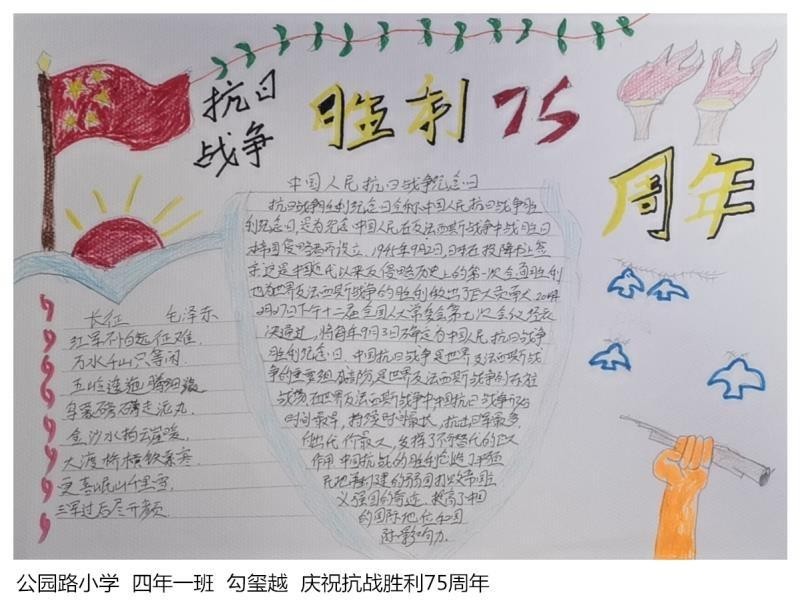 抗日
战争
胜利75
周年
中国人民抗日战争纪念日
抗日战争胜利纪念日全称中国人民抗日战争胜
利纪念日,是为纪念中国人民在反法西斯战争中战胜日
本帝国侵略者而设立,1945年9月2日,日本在投降书上签
字这是中国近代以来反侵略历史上的第一次全面胜利
也为世界反法西斯战争的胜利做出了巨大贡献2014年
2月27日下午十二届全国人大常委会第七次会议经表
决通过,将每年9月3日确定为中国人民抗日战争
胜利纪念日.中国抗日战争是世界反法西斯战
争的重要组成部分,是世界反法西斯战争的东方
战场在世界反法西斯战争中中国抗日战争开始
时间最早,持续时间最长,抗击日军最多,
付出代价最大,发挥了不可替代的巨大
作用 中国抗战的胜利
的国际地位和国
际影响力.
长征 毛泽东
红军不怕远征难,
万水千山只等闲.
五岭逶迤腾细浪
乌蒙磅礴走泥丸.
金沙水拍云崖暖,
大渡桥横铁索寒.
更喜岷山千里雪,
三军过后尽开颜.
公园路小学 四年一班 勾玺越 庆祝抗战胜利75周年